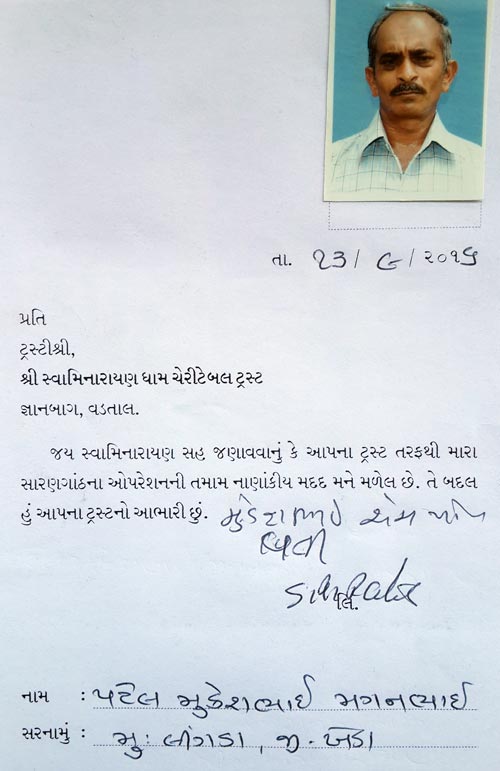 તા. ૨૩/ ૯/ ૨૦૧૬
પ્રતિ
ટ્રસ્ટીશ્રી,
શ્રી સ્વામિનારાયણ ધામ ચેરીટેબલ ટ્રસ્ટ
જ્ઞાનબાગ, વડતાલ.
જય સ્વામિનારાયણ સહ જણાવવાનું કે આપના ટ્રસ્ટ તરફથી મારા
સારણગાંઠના ઓપરેશનની તમામ નાણાંકીય મદદ મને મળેલ છે. તે બદલ
હું આપના ટ્રસ્ટનો આભારી છું. મુકેશભાઈ એમ
લિ.
નામ : પટેલ મુકેશભાઈ મગનભાઈ
સરનામું : મુ: લીંગડા, જી. ખેડા